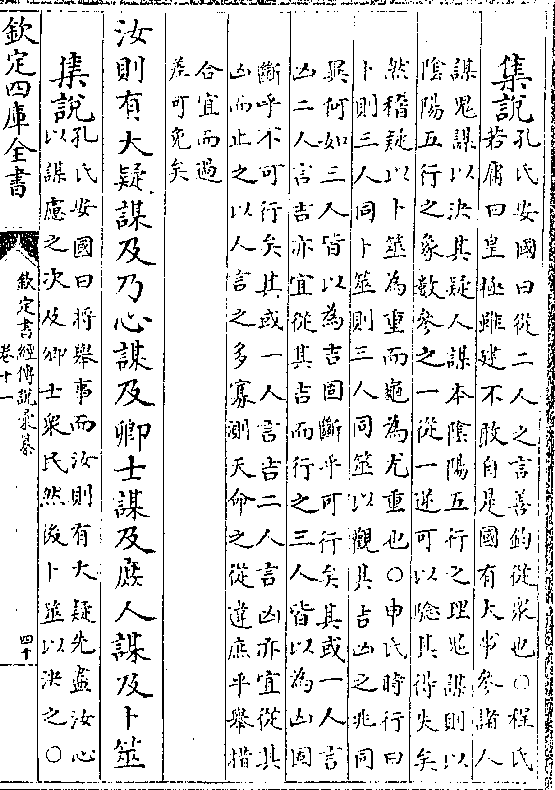 集說孔氏安國曰從二人之言善鈞從衆也○程氏
若庸曰皇極雖建不敢自是國有大事參諸人
謀鬼謀以決其疑人謀本陰陽五行之理鬼謀則以
陰陽五行之象數參之一從一逆可以驗其得失矣
然稽疑以卜筮為重而龜為尤重也○申氏時行曰
卜則三人同卜筮則三人同筮以觀其吉凶之兆同
異何如三人皆以為吉固斷乎可行矣其或一人言
凶二人言吉亦宜從其吉而行之三人皆以為凶固
斷乎不可行矣其或一人言吉二人言凶亦宜從其
凶而止之以人言之多寡測天命之從違庶乎舉措
合宜而過
差可免矣
汝則有大疑謀及乃心謀及卿士謀及庶人謀及卜筮
集說孔氏安國曰將舉事而汝則有大疑先盡汝心
以謀慮之次及卿士衆民然後卜筮以決之○
欽定四庫全書
欽定書經傳說彙纂
卷十一
四十